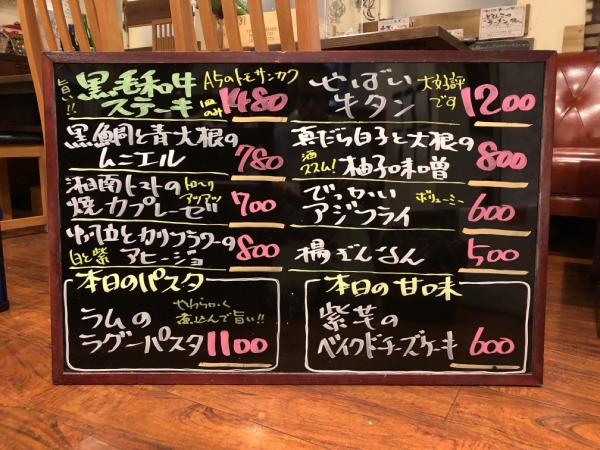 旨い!!
黒毛和牛
ステーキ
A5のトモサンカク
のみ
1480
やばい
牛タン
大好評
です
1200
黒鯛と青大根の
ムニエル
780
真だら白子と大根の
柚子味噌
酒
ススム!
800
湘南トマトの
焼カプレーゼ
アツアツ
700
でっかい
アジフライ
ボリューミー
600
カリフラワーの
アヒージョ
白と紫
800
揚ぎんなん
500
本日のパスタ
ラムの
ラグーパスタ
やわらかく
煮込んで旨い!!
1100
本日の甘味
紫芋の
ベイクドチーズケーキ
600